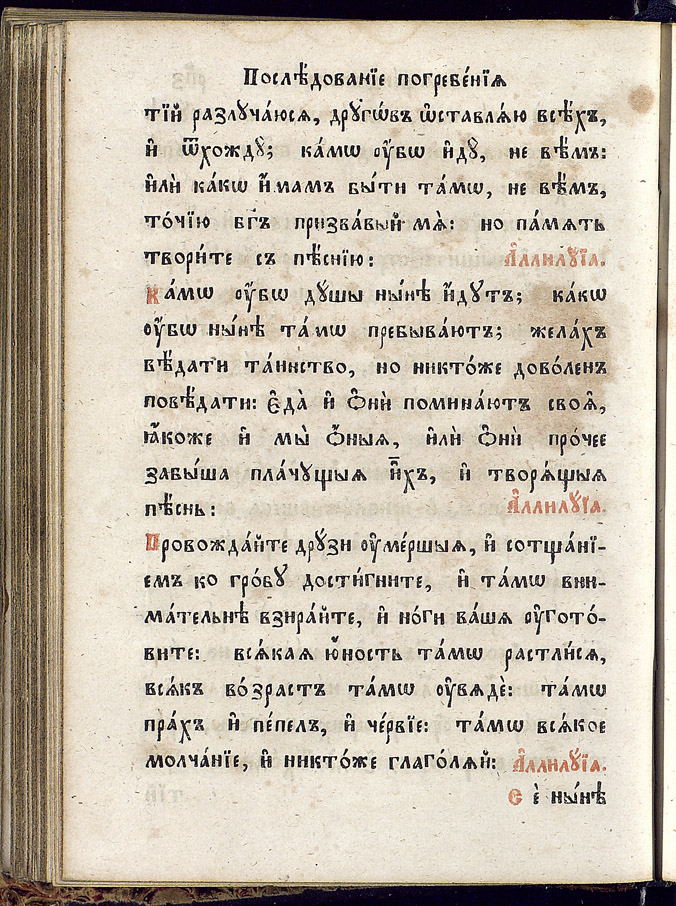 Послѣ́дованїе погребе́нїѧ
тїй разлꙋча́юсѧ, дрꙋгѡ́въ ѡ҆ставлѧ́ю всѣ́хъ,
и҆ ѿхождꙋ̀; ка́мѡ ᲂу҆́бѡ и҆дꙋ̀, не вѣ́мъ:
и҆лѝ ка́кѡ и҆́мамъ бы́ти та́мѡ, не вѣ́мъ,
то́чїю бг҃ъ призва́вый мѧ̀: но па́мѧть
твори́те съ пѣ́снїю: А҆ллилꙋ́їа.
Ка́мѡ ᲂу҆́бѡ дꙋшы̀ ны́нѣ и҆дꙋ́тъ; ка́кѡ
ᲂу҆́бѡ ны́нѣ та́мѡ пребыва́ютъ; жела́хъ
вѣ́дати та́инство, но никто́же дово́ленъ
повѣ́дати: є҆да̀ и҆ ѻ҆нѝ помина́ютъ своѧ̑,
ꙗ҆́коже и҆ мы̀ ѻ҆́ныѧ, и҆лѝ ѻ҆нѝ про́чее
забы́ша пла́чꙋщыѧ и҆̀хъ, и҆ творѧ́щыѧ
пѣ́снь: А҆ллилꙋ́їа.
Провожда́йте дрꙋ́зи ᲂу҆ме́ршыѧ, и҆ со тща́нї-
емъ ко гро́бꙋ дости́гните, и҆ та́мѡ вни-
ма́тельнѣ взира́йте, и҆ но́ги ва́шѧ ᲂу҆гото́-
вите: всѧ́каѧ ю҆́ность та́мѡ растли́сѧ,
всѧ́къ во́зрастъ та́мѡ ᲂу҆вѧдѐ: та́мѡ
пра́хъ и҆ пе́пелъ, и҆ че́рвїе: та́мѡ всѧ́кое
молча́нїе, и҆ никто́же глаго́лѧй: А҆ллилꙋ́їа.
Сѐ ны́нѣ